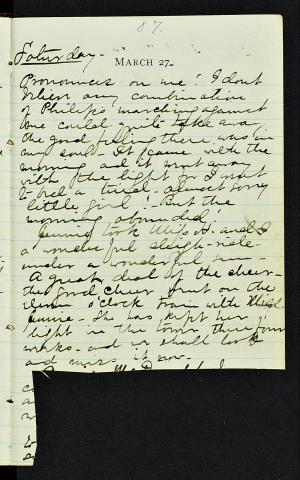 87.
Saturday -
MARCH 27.
Pronounces on me! I dont
believe any combination
of Philips marching against
one could quite take away
the good feeling there was in
my soul - It came with the
morning and it went away
with the light for I went
to bed a tired - almost sorry
little girl! But the
morning abounded!
Jennie took Miss H. and I
a wonderful sleigh-ride
under a wonderful sun -
A great deal of the cheer -
the good cheer went on the
eleven o'clock train with
Jennie - She has kept her
light in the tower these four
weeks - and we shall look
and miss it now -